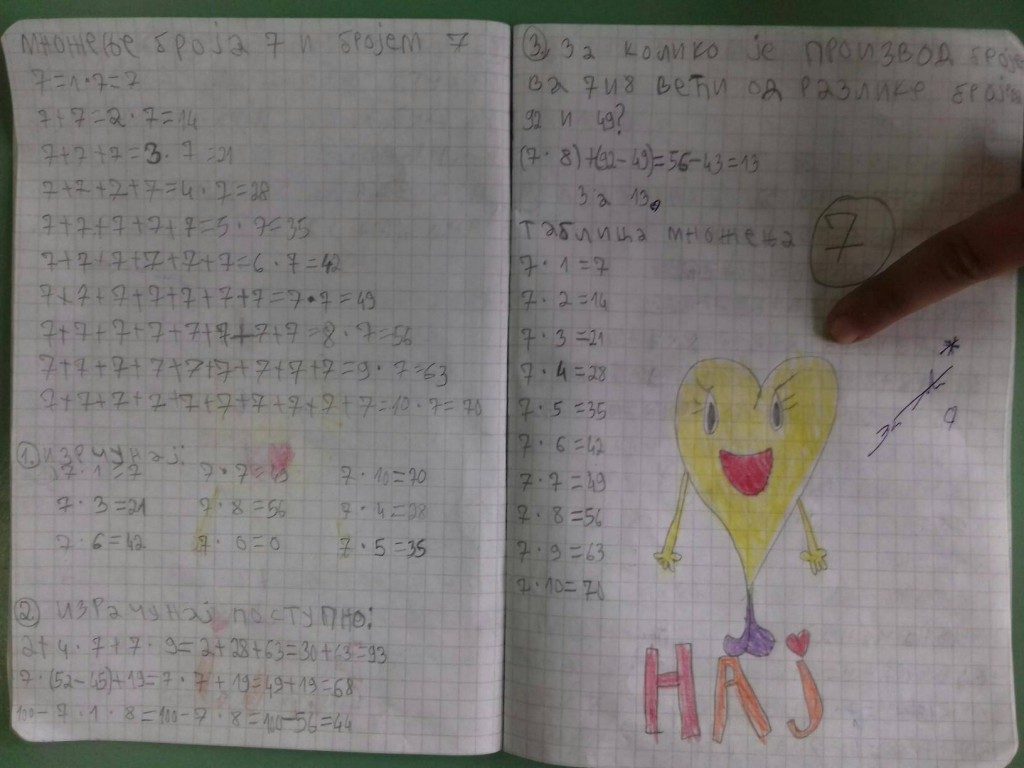 множење броја 7 и бројем 7
7=1·7=7
7+7=2·7=14
7+7+7=3·7=21
7+7+7+7=4·7=28
7+7+7+7+7=5·7=35
7+7+7+7+7+7=6·7=42
7+7+7+7+7+7+7=7·7=49
7+7+7+7+7+7+7+7=8·7=56
7+7+7+7+7+7+7+7+7=9·7=63
7+7+7+7+7+7+7+7+7+7=10·7=70
1. израчунај:
7·1=7 7·7=49 7·10=70
7·3=21 7·8=56 7·4=28
7·6=42 7·0=0 7·5=35
2 израчунај поступно:
2+4·7+7·9=2+28+63=30+63=93
7·(52-45)+19=7·7+19=49+19=68
100-7·1·8=100-7·8=100-56=44
3. За колико је производ броје
ва 7 и 8 већи од разлике бројева
92 и 49?
(7·8)+(92-49)=56-43=13
За 13.
Таблица множења 7
7·1=7
7·2=14
7·3=21
7·4=28
7·5=35
7·6=42
7·7=49
7·8=56
7·9=63
7·10=70
НАЈ